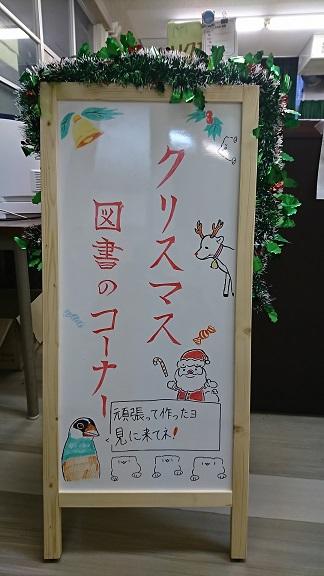 クリスマス
図書のコーナー
頑張って作ったヨ
見に来てネ!